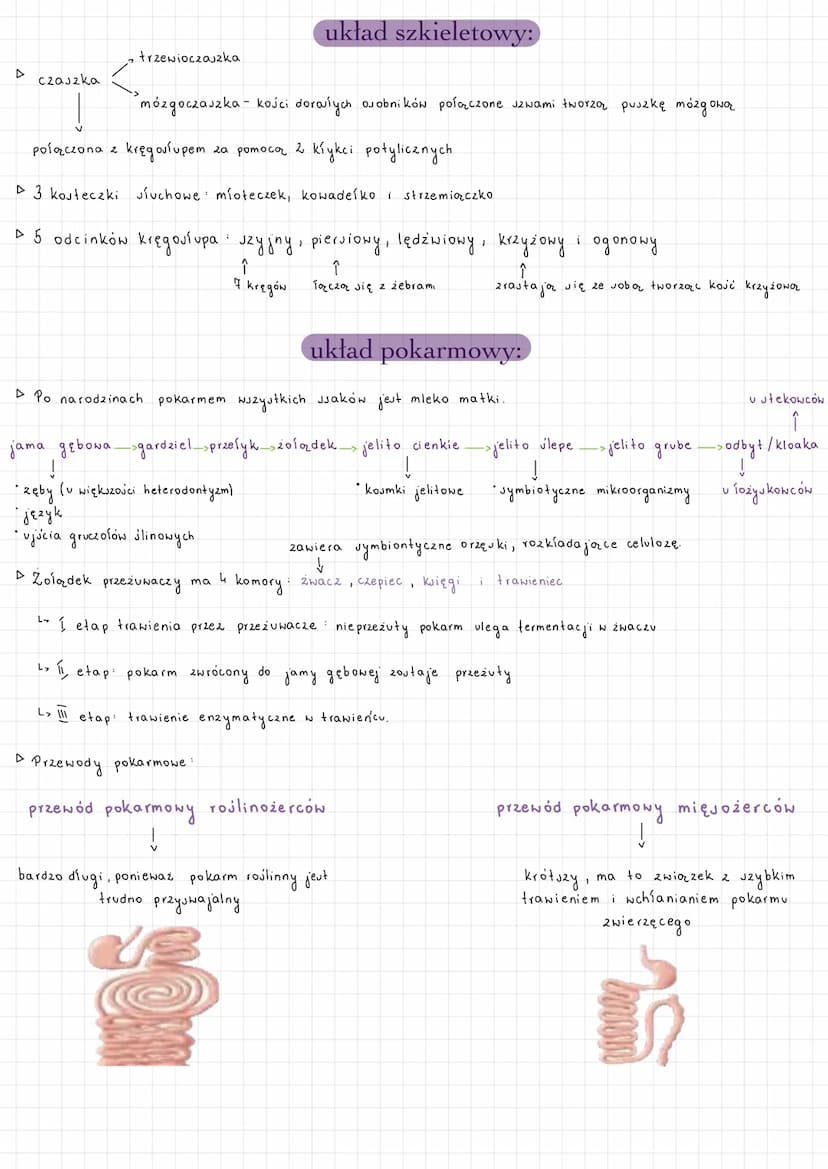 układ szkieletowy:
▷ czaszka
→ trzewioczaszka
→ mózgoczaszka - kości dorosłych osobników połączone szwami tworzą puszkę mózgową
połączona z kręgosłupem za pomocą 2 kłykci potylicznych
▷ 3 kosteczki słuchowe: młoteczek, kowadełko i strzemiączko
▷ 5 odcinków kręgosłupa: szyjny, piersiowy, lędźwiowy, krzyżowy i ogonowy
7 kręgów łączą się z żebrami zrastają się ze sobą tworząc kość krzyżową
układ pokarmowy:
▷ Po narodzinach pokarmem wszystkich ssaków jest mleko matki.
u stekowców
jama gębowa → gardziel → przełyk → żołądek → jelito cienkie → jelito ślepe → jelito grube → odbyt/kloaka
• zęby (u większości heterodontyzm) • kosmki jelitowe • symbiotyczne mikroorganizmy u łożyskowców
• język
• ujścia gruczołów ślinowych
zawiera symbiontyczne orzęski, rozkładające celulozę.
▷ Żołądek przeżuwaczy ma 4 komory: żwacz, czepiec, księgi i trawieniec
↳ I etap trawienia przez przeżuwacze: nieprzeżuty pokarm ulega fermentacji w żwaczu
↳ II etap: pokarm zwrócony do jamy gębowej zostaje przeżuty
↳ III etap: trawienie enzymatyczne w trawieńcu.
▷ Przewody pokarmowe:
przewód pokarmowy roślinożerców
bardzo długi, ponieważ pokarm roślinny jest
trudno przyswajalny
przewód pokarmowy mięsożerców
krótszy, ma to związek z szybkim
trawieniem i wchłanianiem pokarmu
zwierzęcego